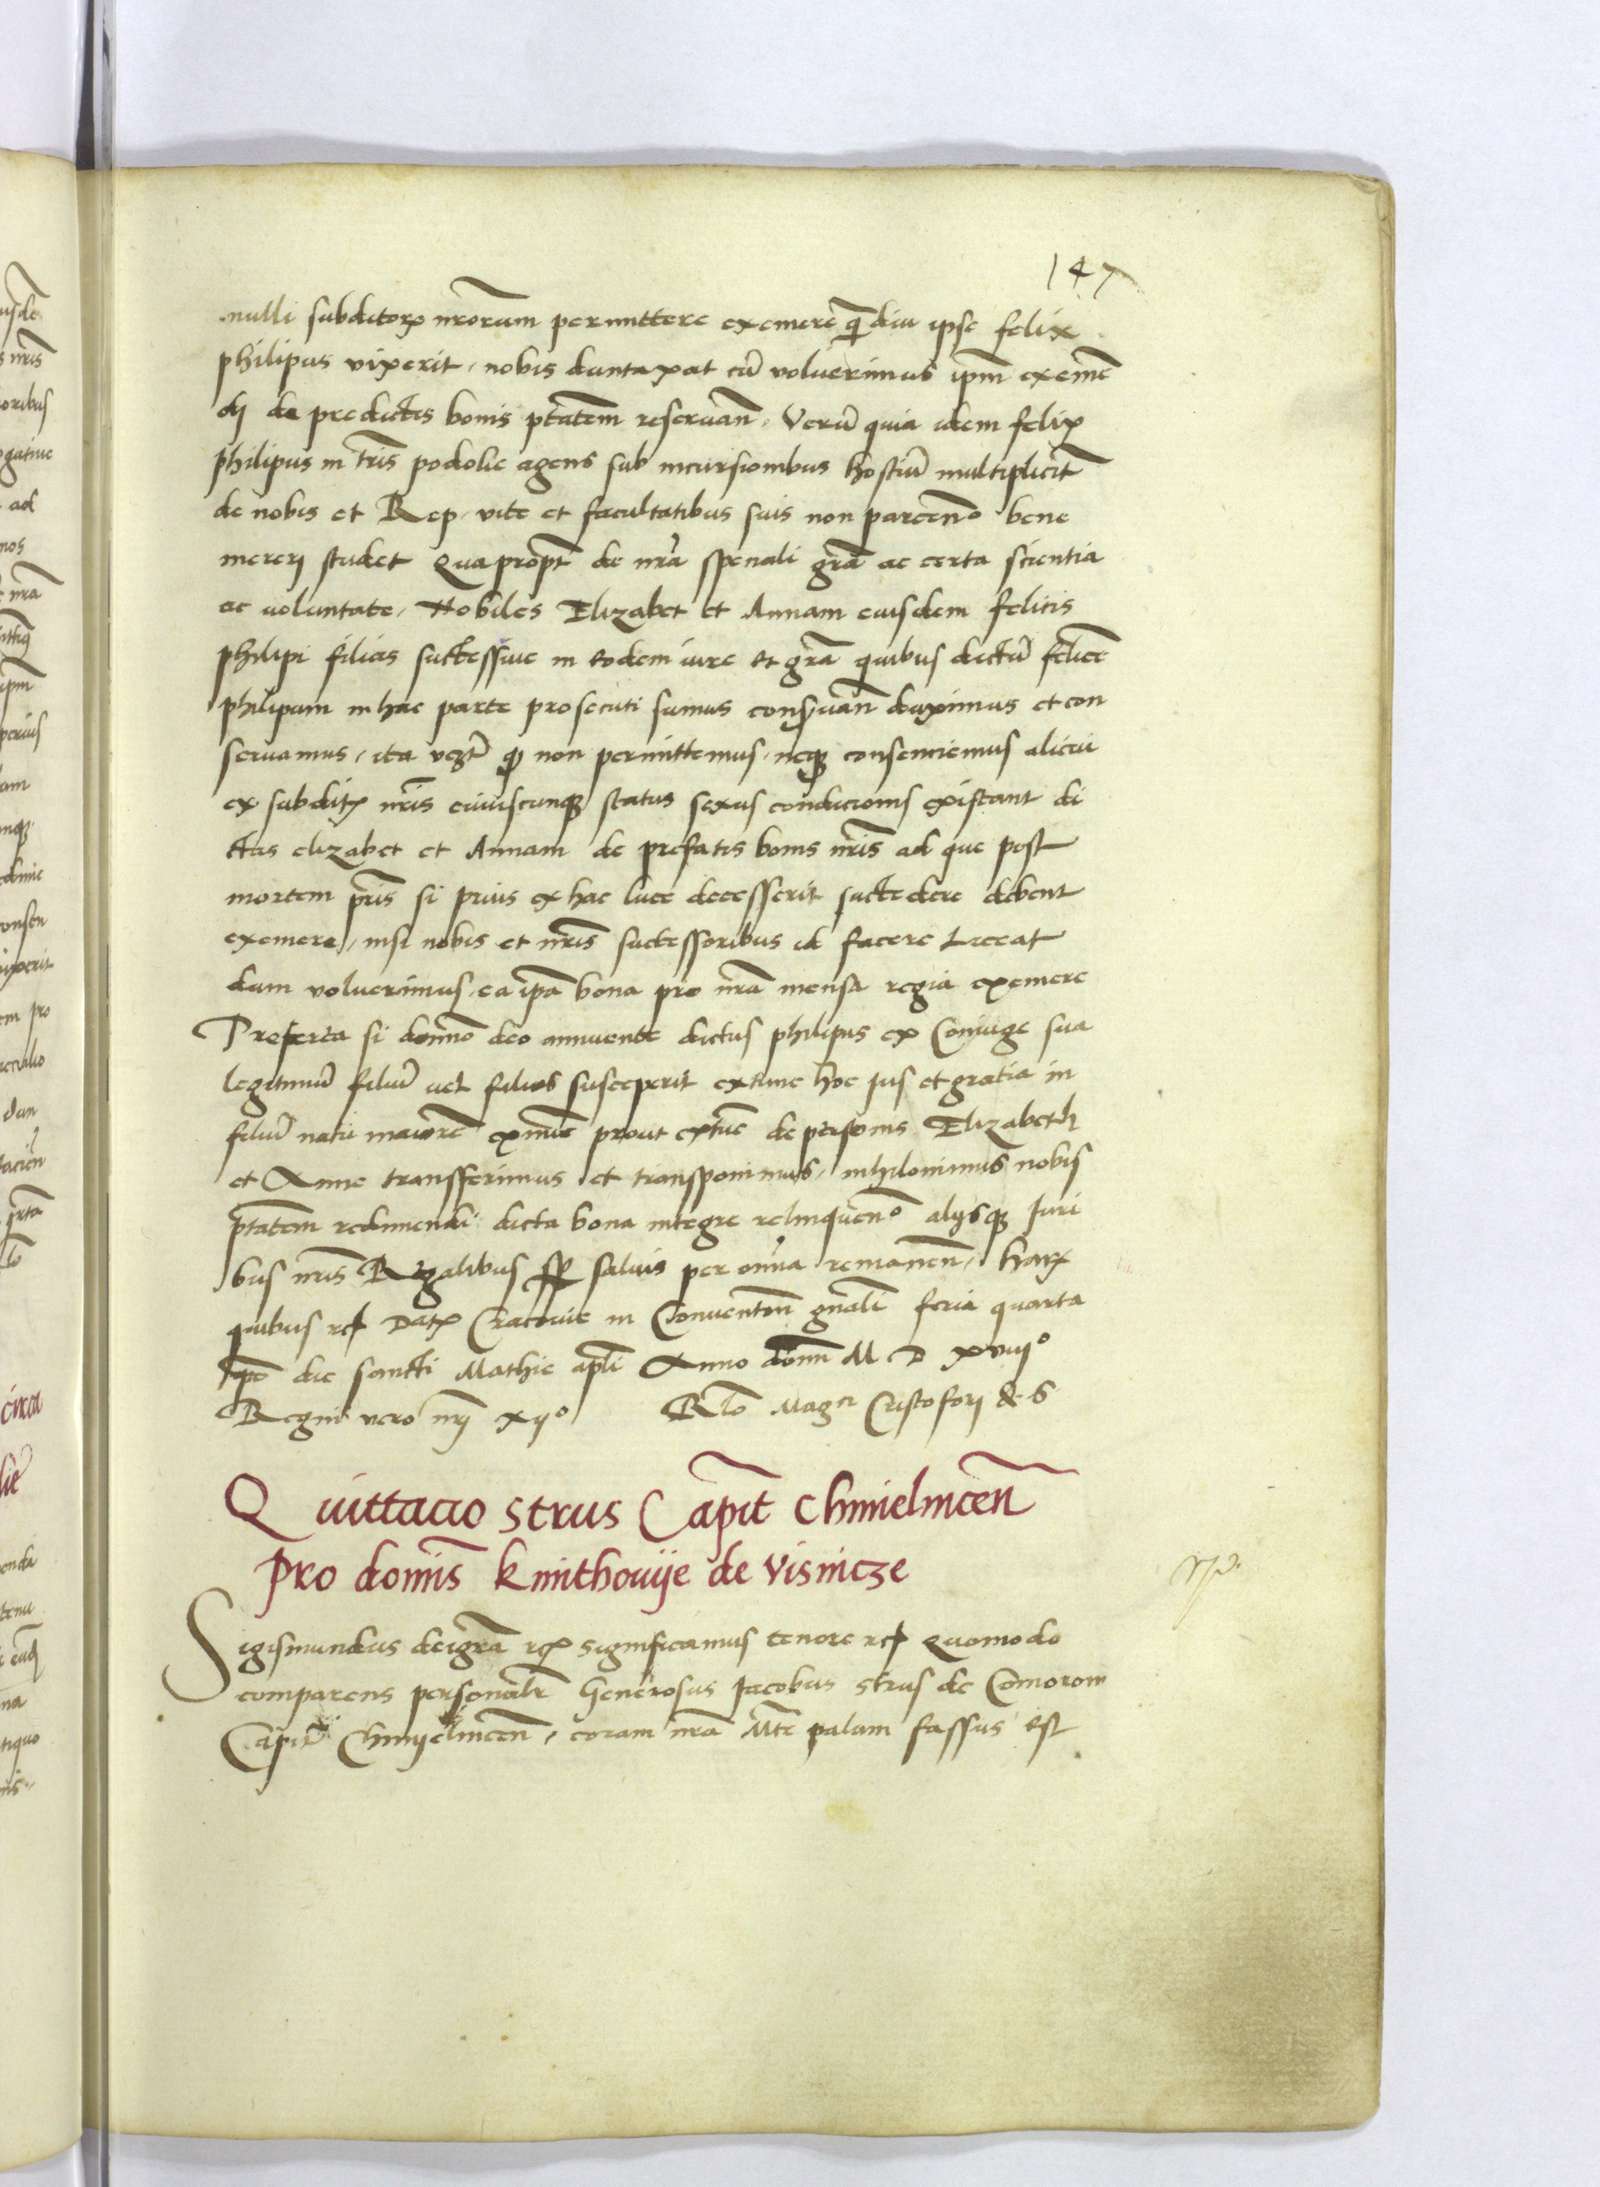 147
nulli subditoꝝ nr̄orum permittere exemere qͣdiu ipse felix
philipus vixerit, nobis duntaxat cū voluerimus ipm̄ exemē
dj de predictis bonis ptātem reservan̄, Verū quia idem felix
philipus in tris̄ podolie agens sub incursionibus hostiū multiplicit̄
de nobis et Rep, vite et facultatibus suis non parcenº bene
mererj studet Quapropt̄ de nrā speciali grā ac certa scientia
ac voluntate, Nobiles Elizabet et Annam eiusdem felicis
philipi filias successiue in eodem iure et grā quibus dictū felicē
philipum in hac parte prosecuti sumus consͬuan̄ duximus et con
seruamus, ita vꝫtͬ ꝙ non permittemus, neqꝫ consenciemus alicui
ex subditꝭ nrīs cuiuscunqꝫ status sexus condicionis existant di
ctas elizabet et Annam de prefatis bonis nrīs ad que post
mortem prīs si prius ex hac luce decesserit succedere debent
exemere, nisi nobis et nrīs successoribus id facere Liceat
dum voluerimus, ea ipā bona pro nrā mensa regia exemere
Preterea si domīno deo annuente dictus philipus ex Coniuge sua
legitimū filiū uel filios susceperit extunc hoc Jus et gratia in
filiū natu maiorē exnūc prout extūc de personis Elizabeth
et Anne transfferimus et transponimus, nihilominus nobis
ptātem redimendi dicta bona integre relinquenº alijsqꝫ Juri
bus nrīs Regalibus sꝑ saluis per omnia remanen̄, harꝝ
quibus rcꝭ Datꝭ Cracouie in Conuentōn gnāli feria quarta
ipō die sancti Mathie apli Anno domī M D xviijº
Regni vero nrj xijº Rlō Magͨⁱ Cristoforj de S
Quittacio strus Capit̄ chmielnicen̄
Pro domīs kmithovije de visnicze
Sigismundus deigrā rex significamus tenore rcꝭ Quomodo
comparens personalr̄ Generosus Jacobus strus de Comorow
Capit̄ Chmijelnicen̄, coram nrā Mte palam fassus est